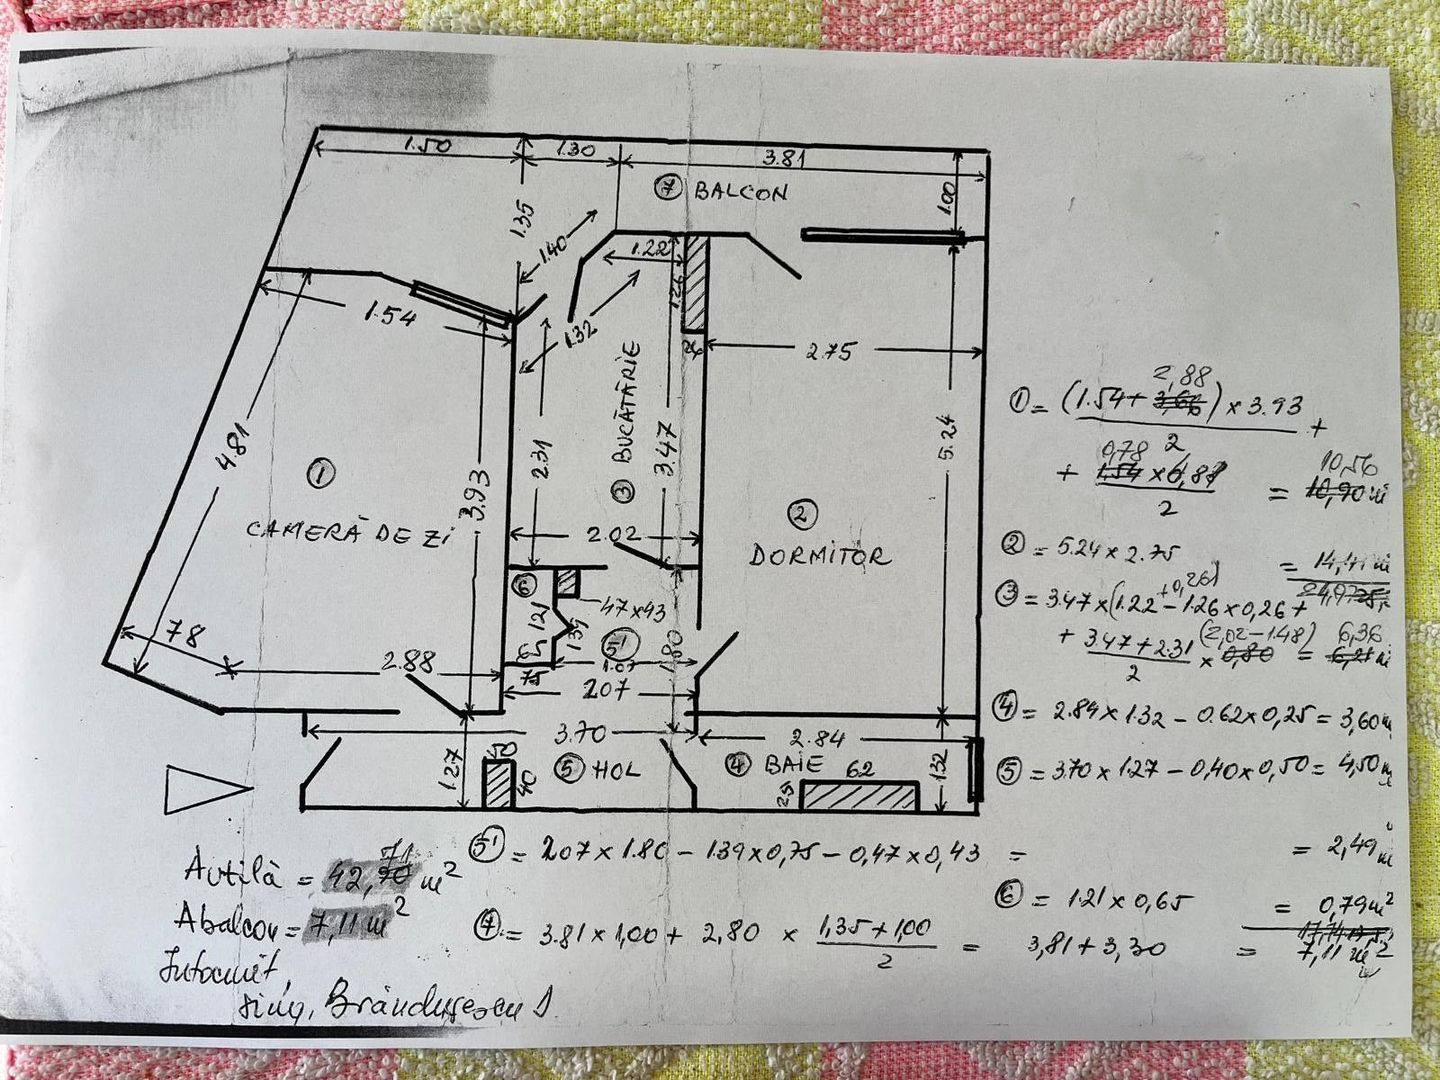 1.50 1.30 3.81
7 BALCON
1.00
1.35
1.40
1.22
1.26
1.54
1.32
26
2.75
4.81
2.31
3 BUCĂTĂRIE
3.47
5.24
1
CAMERĂ DE ZI
3.93
2.02
2
DORMITOR
6
47x43
1.21
1.39
5'
1.80
78
2.88
75
2.07
3.70
2.84
1.27
50
40
5 HOL
4 BAIE
62
25
1.32
2,88
1 = (1.54+ 3,66) x 3.93 +
2
0,78
+ 1.54 x 0,87 = 10,56
2
10,90 m²
2 = 5.24 x 2.75 = 14,41 m²
+0,26)
3 = 3.47x(1.22 - 1.26 x 0,26 +
(2,02-1.48) 6,36
+ 3.47+2.31 x 0,80 = 6,21 m²
2
4 = 2.84 x 1.32 - 0.62 x 0,25 = 3,60 m²
5 = 3.70 x 1.27 - 0,40 x 0,50 = 4,50 m²
5' = 2.07 x 1.80 - 1.39 x 0,75 - 0,47 x 0,43 = = 2,49 m²
6 = 1.21 x 0,65 = 0,79 m²
7 = 3.81 x 1,00 + 2,80 x 1,35+1,00 = 3,81 + 3,30 = 7,11 m²
2
71
Autilă = 42,70 m²
Abalcon = 7,11 m²
Întocmit,
sing. Brândușescu D.